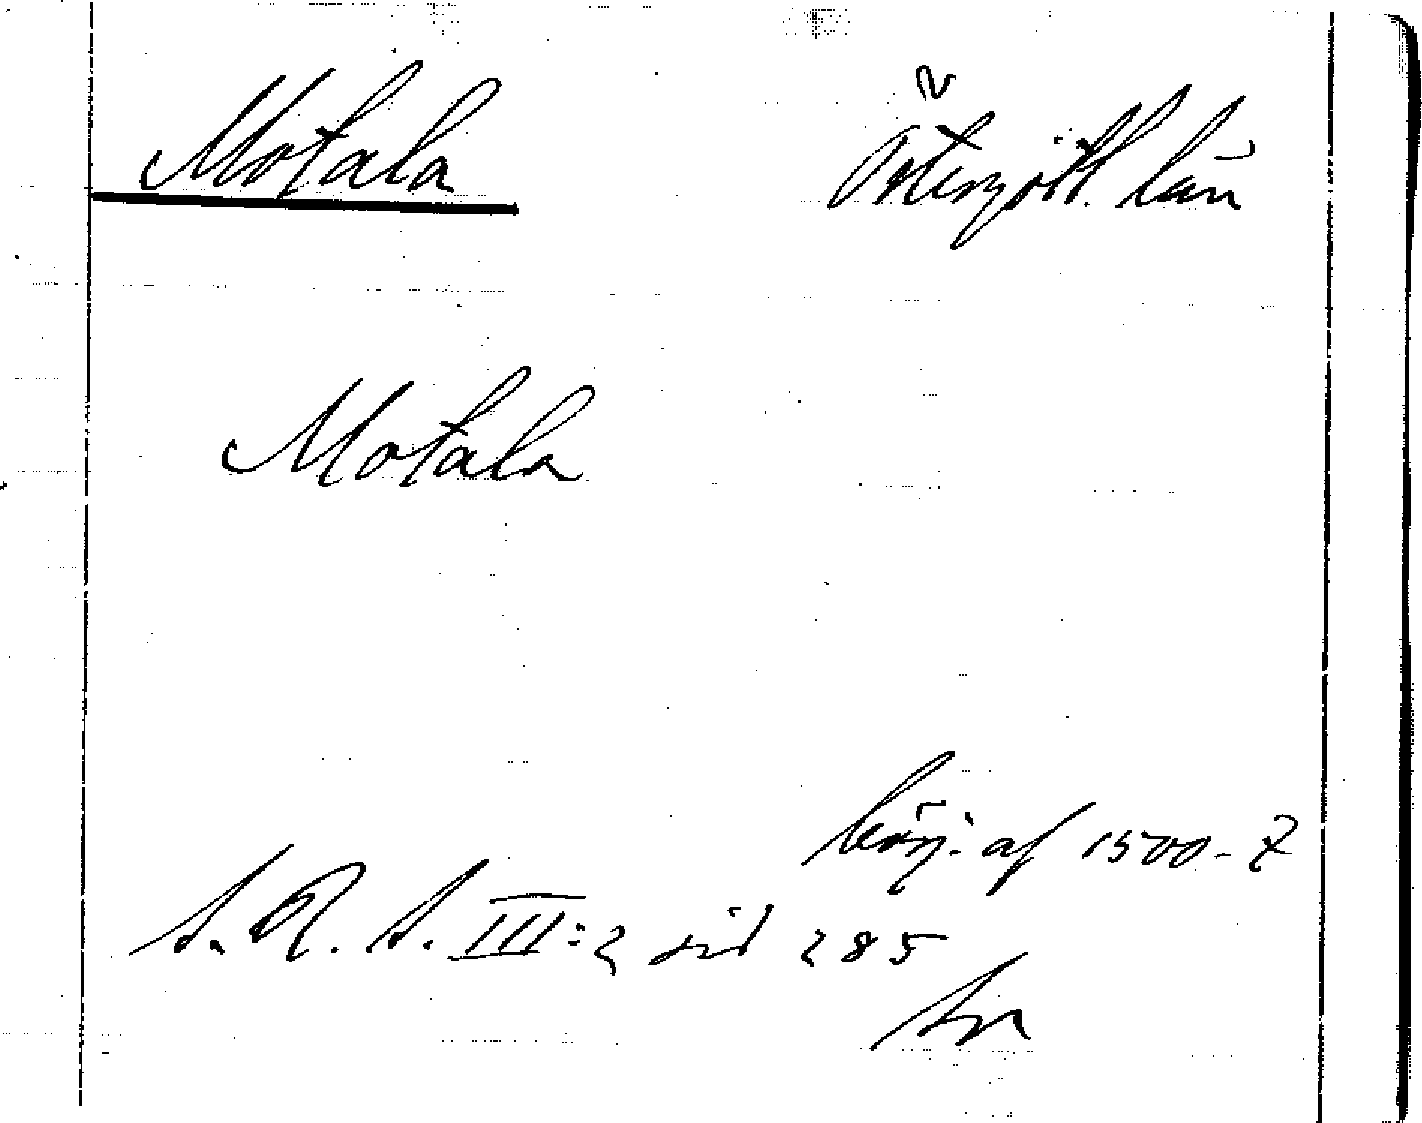 Motala Östergött. län
Motala
börj. af 1500-t
S. R. S. III:2 sid 285